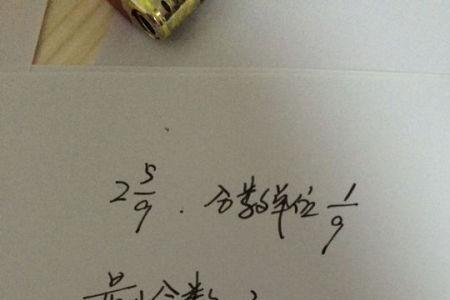 2 5/9 . 分数单位 1/9
分数